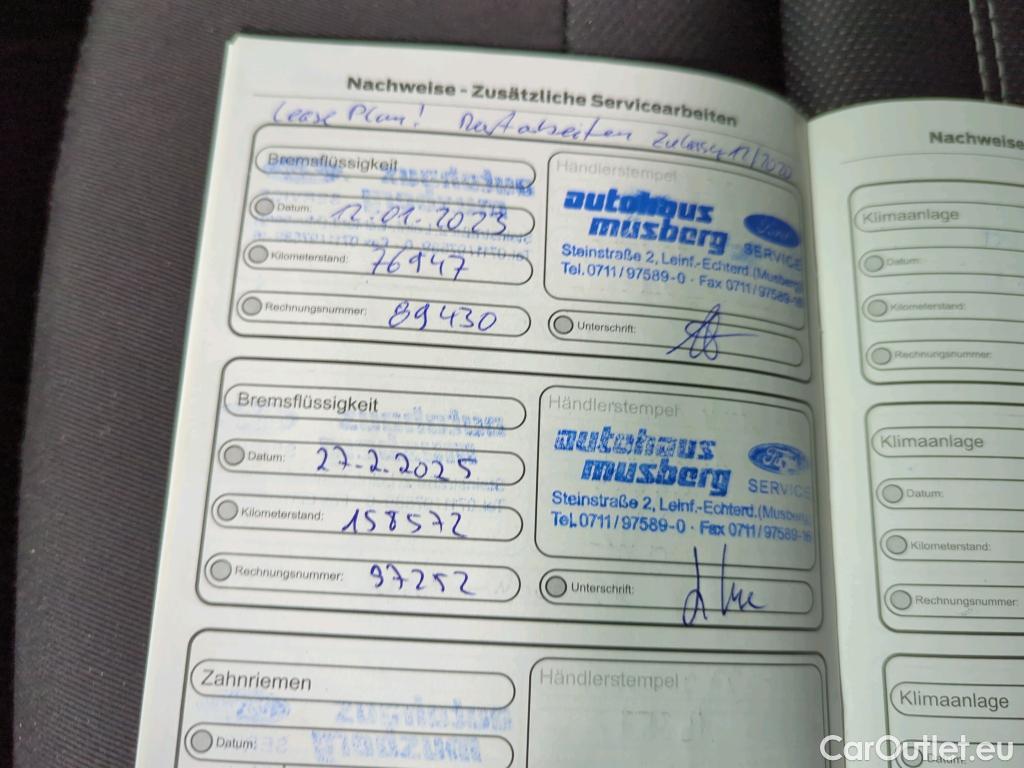 Nachweise - Zusätzliche Servicearbeiten
Lease Plan! 12/2020
Bremsflüssigkeit
Datum: 12.01.2023
Kilometerstand: 76947
Rechnungsnummer: 89430
Händlerstempel
autohaus
müsberg
Ford
SERVICE
Steinstraße 2, Leinf.-Echterd.(Musberg)
Tel. 0711/97589-0 · Fax 0711/97589-16
Unterschrift:
Bremsflüssigkeit
Datum: 27.2.2025
Kilometerstand: 158572
Rechnungsnummer: 97252
Händlerstempel
autohaus
musberg
Ford
SERVICE
Steinstraße 2, Leinf.-Echterd.(Musberg
Tel. 0711/97589-0 · Fax 0711/97589-16
Unterschrift:
Zahnriemen
Datum:
Händlerstempel
Nachweise
Klimaanlage
Datum:
Kilometerstand:
Rechnungsnummer:
Klimaanlage
Datum:
Kilometerstand:
Rechnungsnummer:
Klimaanlage
Datum:
CarOutlet.eu